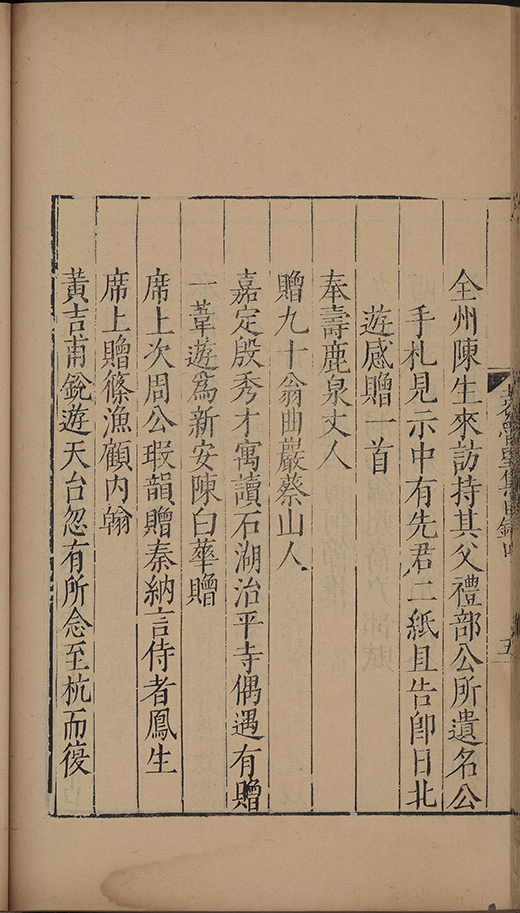 全州陳生來訪持其父禮部公所遺名公
手札見示中有先君二紙且告卽日北
遊感贈一首
奉壽鹿泉丈人
贈九十翁曲巖蔡山人
嘉定殷秀才寓讀石湖治平寺偶遇有贈
一葦遊爲新安陳白華贈
席上次周公瑕韻贈秦納言侍者鳳生
席上贈篠漁顧内翰
黃吉甫銳遊天台忽有所念至杭而復